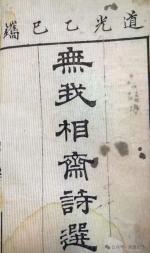 道光乙巳鐫
無我相齋詩選